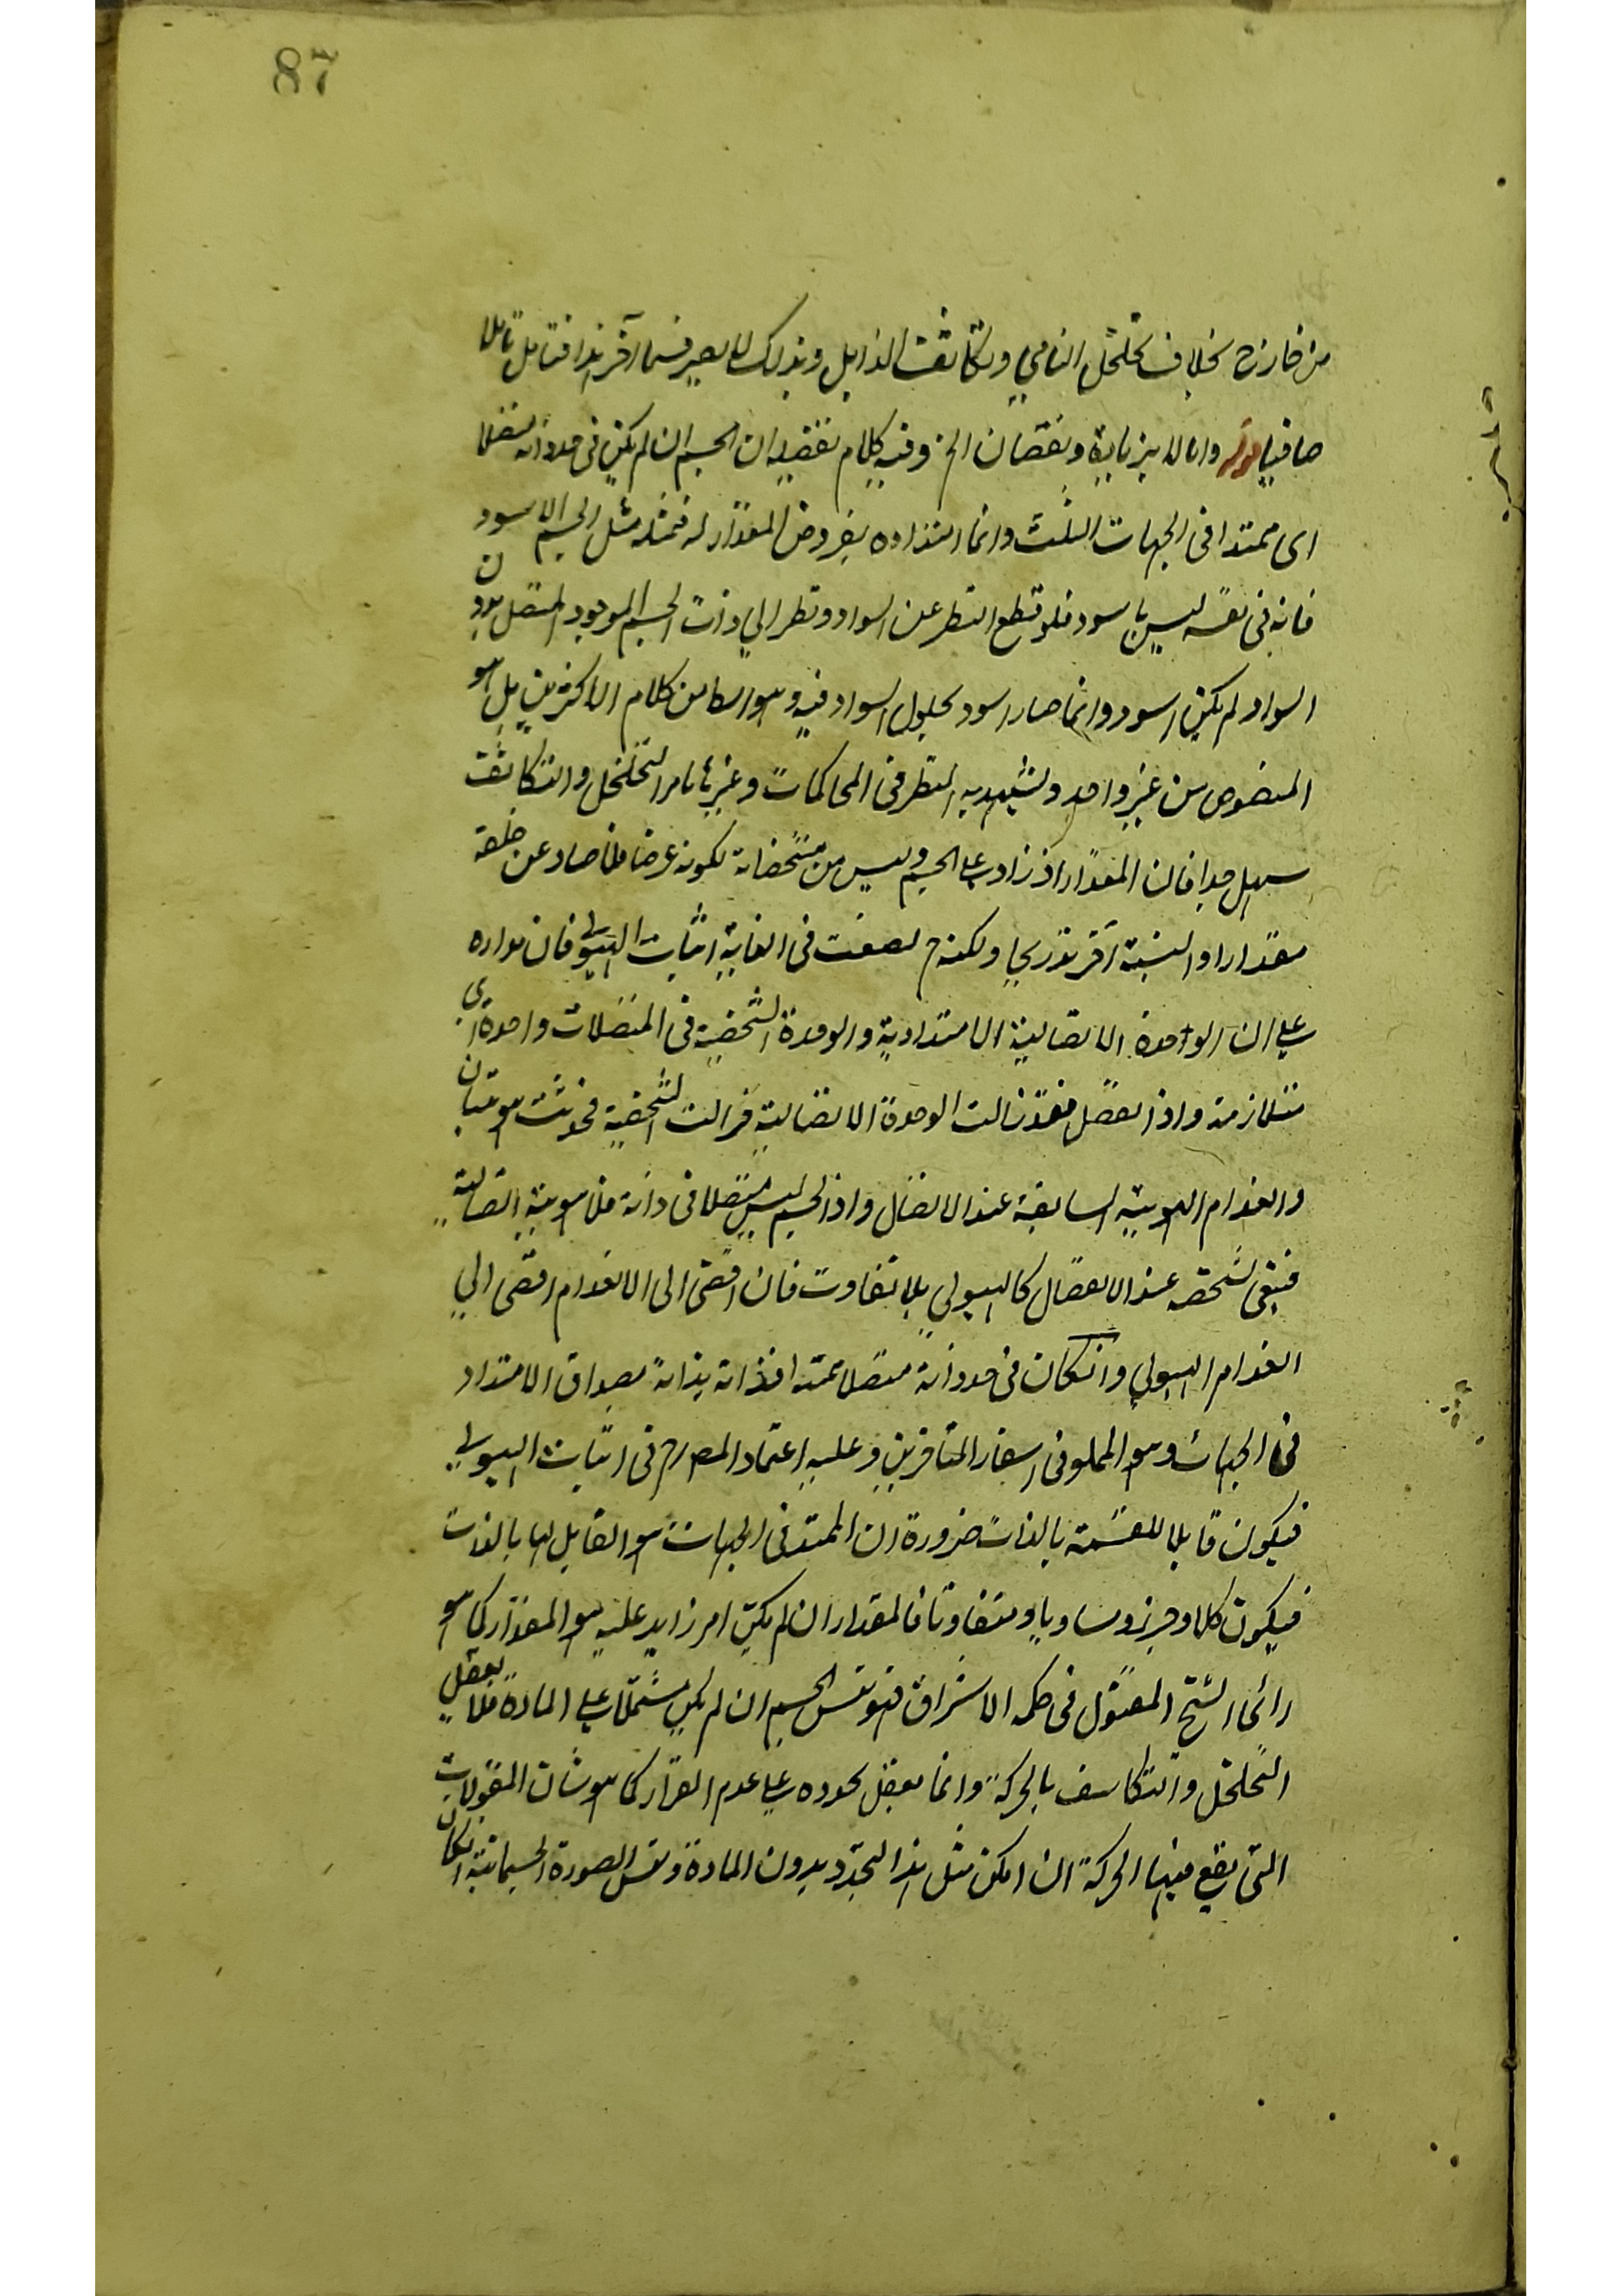 87
من خارج بخلاف تخلخل النامي وتكاثف الذابل وبذلك لا يصير قسما آخر هذا فتامل تاملا
صافيا قوله واما لا بزيادة ونقصان الخ وفيه كلام تفصيله ان الجسم ان لم يكن في حد ذاته متصلا
اى ممتدا فى الجهات الثلث وانما امتداده بعروض المقدار له فمثله مثل الجسم الاسود
فانه فى نفسه ليس باسود فلو قطع النظر عن السواد ونظر الي ذات الجسم الموجود المتصل بدون
السواد لم يكن اسود وانما صار اسود بحلول السواد فيه وهو من كلام الاكثرين بل هو
المنصوص من غير واحد ويشهد به النظر فى المحاكمات وغيرها فامر التخلخل والتكاثف
سهل جدا فان المقدار اذ زاد على الجسم وليس من مشخصاته لكونه عرضا فاذا صار عن خلقه
مقدارا او اليسته آخر تدريجا ولكنه ح يصعب فى الغاية اثبات الهيولى فان مداره
على ان الوحدة الاتصالية الامتدادية والوحدة الشخصية فى المتصلات واحدة اى
متلازمة واذا انفصل فقد زالت الوحدة الاتصالية فزالت الشخصية فحدثت هويتان
وانعدام الهوية السابقة عند الانفصال واذا الجسم ليس متصلا فى ذاته فلا هوية اتصالية
فيبقى بشخصه عند الانفصال كالهيولي بلا تفاوت فان افضى الى الانعدام افضى الي
انعدام الهيولي وانكان فى حد ذاته متصلا ممتدا فذاته بذاته مصداق الامتداد
فى الجهات وهو المملو فى اسفار المتاخرين وعليه اعتماد المصـ رح فى اثبات الهيولى
فيكون قابلا للقسمة بالذات ضرورة ان الممتد فى الجهات هو القابل لها بالذات
فيكون كلا وجزء ومساويا ومتفاوتا فالمقدار ان لم يكن امر زايد عليه هو المقدار كما هو
رأى الشيخ المقتول فى حكمة الاشراق فهو نفس الجسم ان لم يكن مشتملا على المادة فلا يعقل
التخلخل والتكاثف بالحركة وانما يعقل بحدوده على عدم القرار كما هو شان المقولات
التى يقع فيها الحركة ان امكن مثل هذا التجدد بدون المادة ونفس الصورة الجسمانية انكان